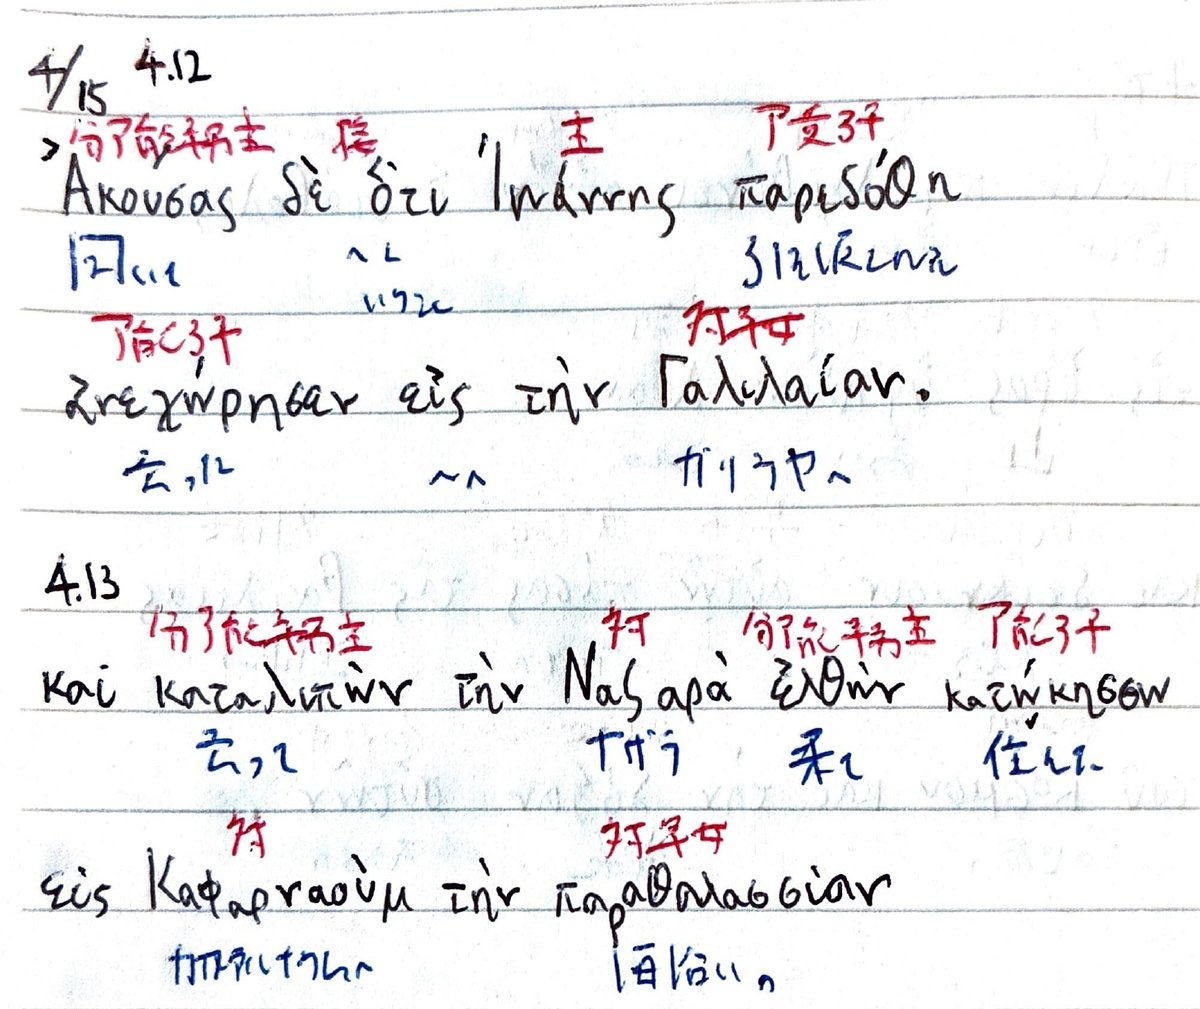 4/15 4.12
分了能単男主 接 主 了受3千
Ἀκούσας δὲ ὅτι Ἰωάννης παρεδόθη
聞いて ~と いうこと 引き渡された
了能3千 対単女
ἀνεχώρησεν εἰς τὴν Γαλιλαίαν.
去った ~へ ガリラヤへ
4.13
分了能単男主 対 分了能単男主 了能3千
καὶ καταλιπὼν τὴν Ναζαρὰ ἐλθὼν κατῴκησεν
去って ナザラ 来て 住んだ
対 対単女
εἰς Καφαρναοὺμ τὴν παραθαλασσίαν
海沿い